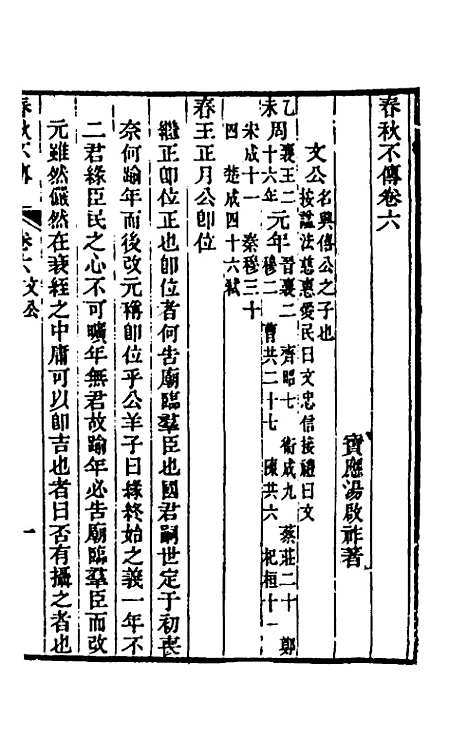 春秋不傳卷六
寶應湯啟祚著
文公名興僖公之子也
按諡法慈惠愛民曰文忠信接禮曰文
乙未周襄王二十六年元年晉襄二 齊昭七 衛成九 蔡莊二十 鄭穆二 曹共二十七 陳共六 杞桓十一
宋成十一 秦穆三十四 楚成四十六弒
春王正月公卽位
繼正卽位正也卽位者何告廟臨羣臣也國君嗣世定于初喪
奈何踰年而後改元稱卽位乎公羊子曰緣終始之義一年不
二君緣臣民之心不可曠年無君故踰年必告廟臨羣臣而改
元雖然儼然在衰絰之中庸可以卽吉也者曰否有攝之者也
春秋不傳 卷六文公 一